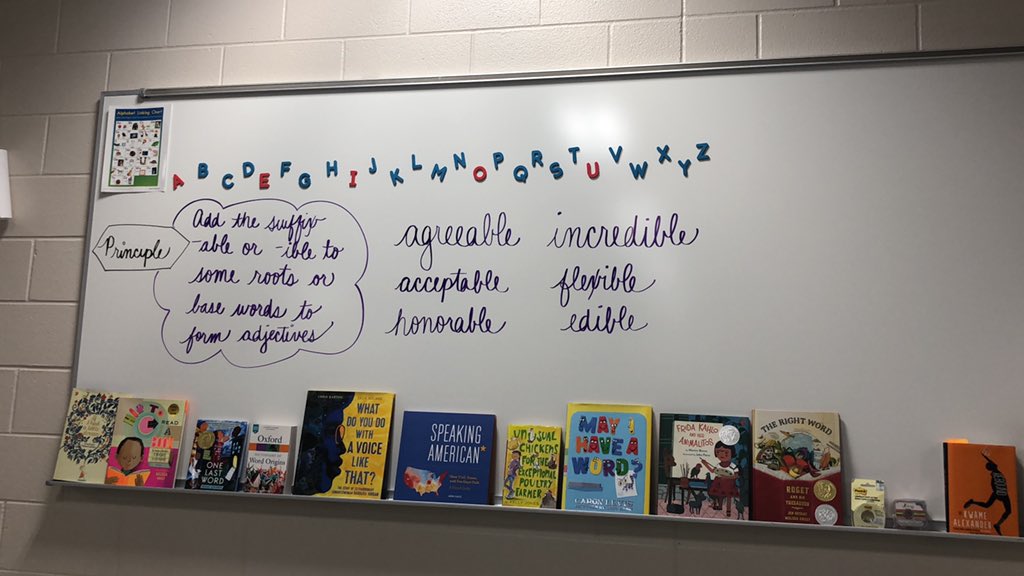 Alphabet Linking Chart
A B C D E F G H I J K L M N O P Q R S T U V W X Y Z
Principle
Add the suffix
-able or -ible to
some roots or
base words to
form adjectives
agreeable incredible
acceptable flexible
honorable edible
READ
ONE
LAST
WORD
Oxford
Word Origins
WHAT
DO YOU DO
WITH
A VOICE
LIKE
THAT?
SPEAKING
AMERICAN*
UNUSUAL
CHICKENS
FOR THE
EXCEPTIONAL
POULTRY
FARMER
MAY I
HAVE A
WORD?
CARON LEVIS
FRIDA KAHLO
AND HER
ANIMALITOS
THE RIGHT WORD
ROGET
AND HIS
THESAURUS
KWAME
ALEXANDER